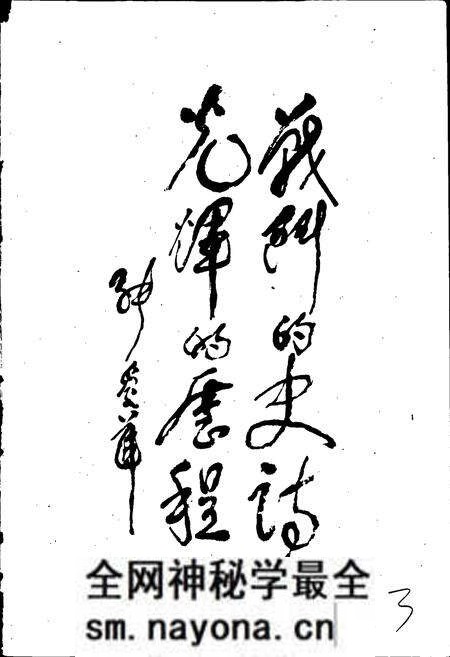 战斗的史詩
光輝的歷程
全网神秘学最全
sm.nayona.cn
3